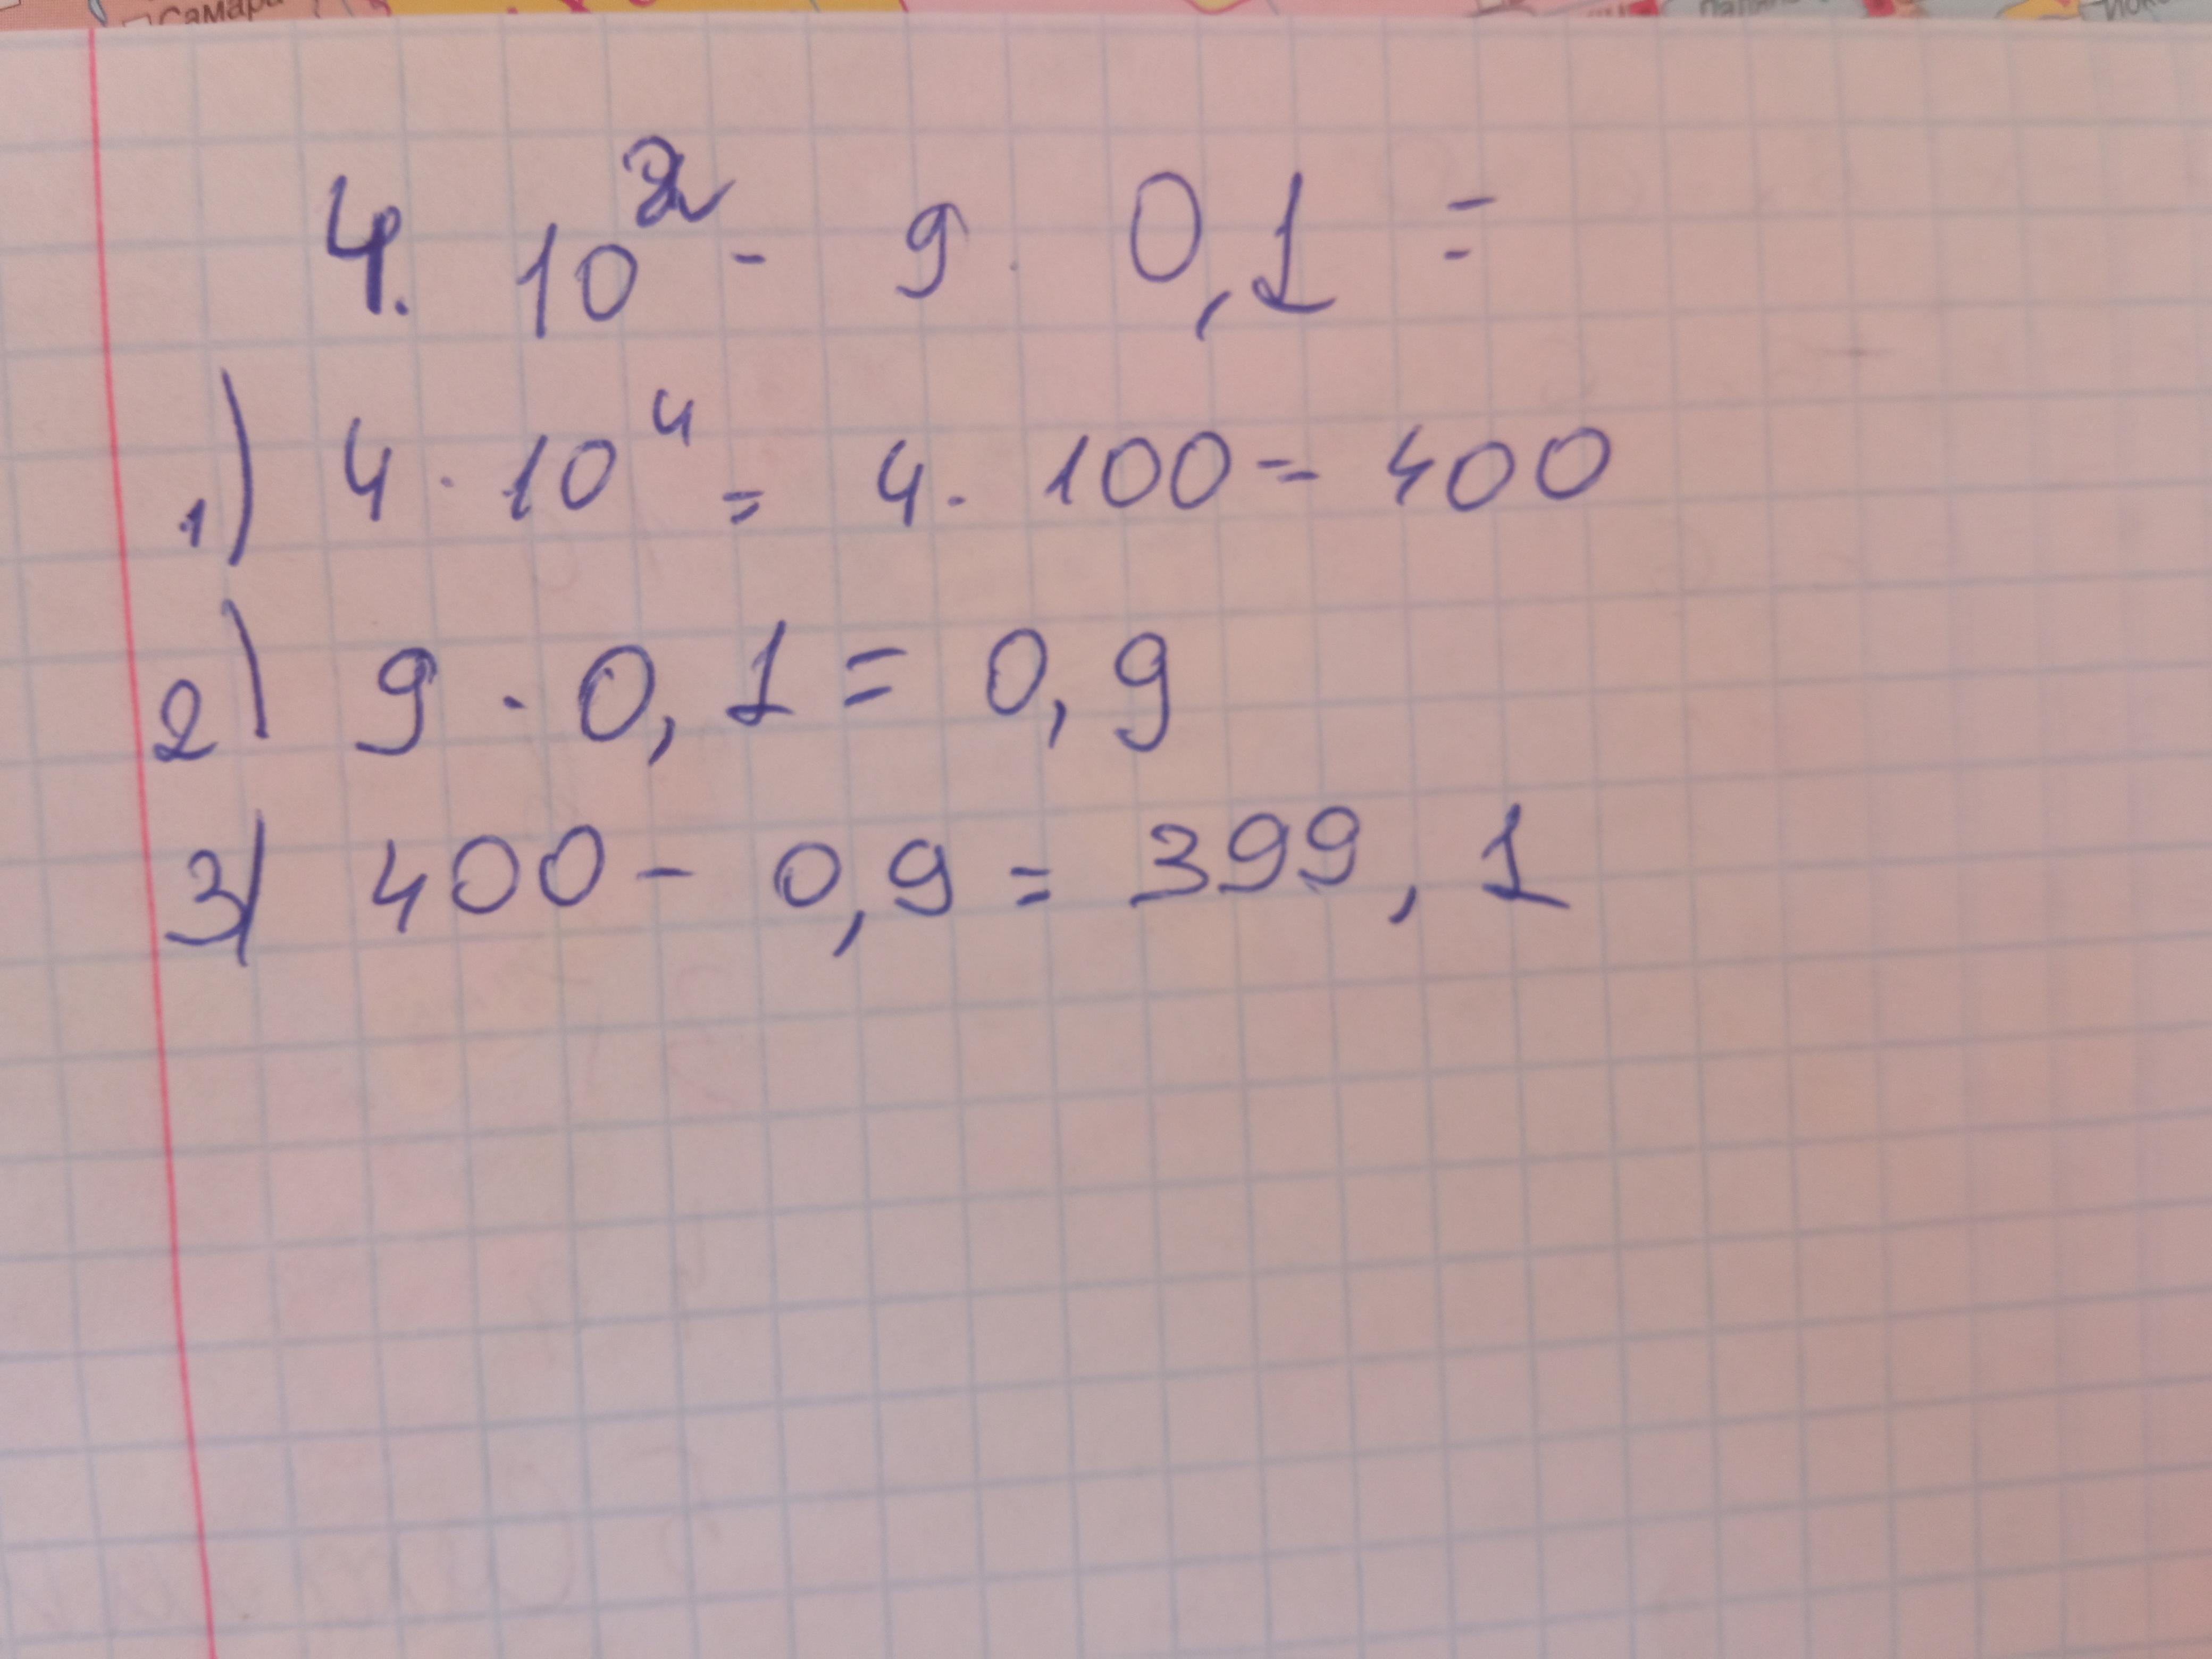 Самара
4. 10² - 9 · 0,1 =
1) 4 · 10⁴ = 4 · 100 = 400
2) 9 · 0,1 = 0,9
3) 400 - 0,9 = 399,1